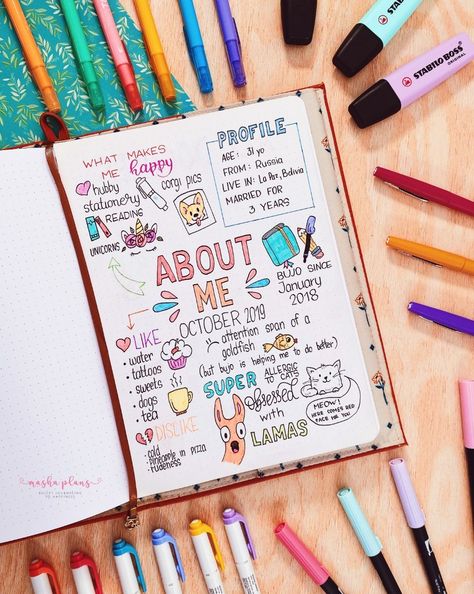 STABILO BOSS
ORIGINAL
STABILO BOSS
ORIGINAL
WHAT MAKES
ME happy
hubby
stationery
corgi pics
READING
UNICORNS
PROFILE
AGE: 31 yo
FROM: Russia
LIVE IN: La Paz, Bolivia
MARRIED FOR
3 YEARS
ABOUT
ME
OCTOBER 2019
BUJO SINCE
January
2018
LIKE
• water
• tattoos
• sweets
• dogs
• tea
attention span of a
goldfish
(but bujo is helping me to do better)
SUPER ALLERGIC
TO CATS
Obsessed
with
LAMAS
MEOW!
HERE COMES RED
FACE FOR YOU
DISLIKE
• cold
• pineapple in pizza
• rudeness
masha plans
BULLET JOURNALING
TO HAPPINESS